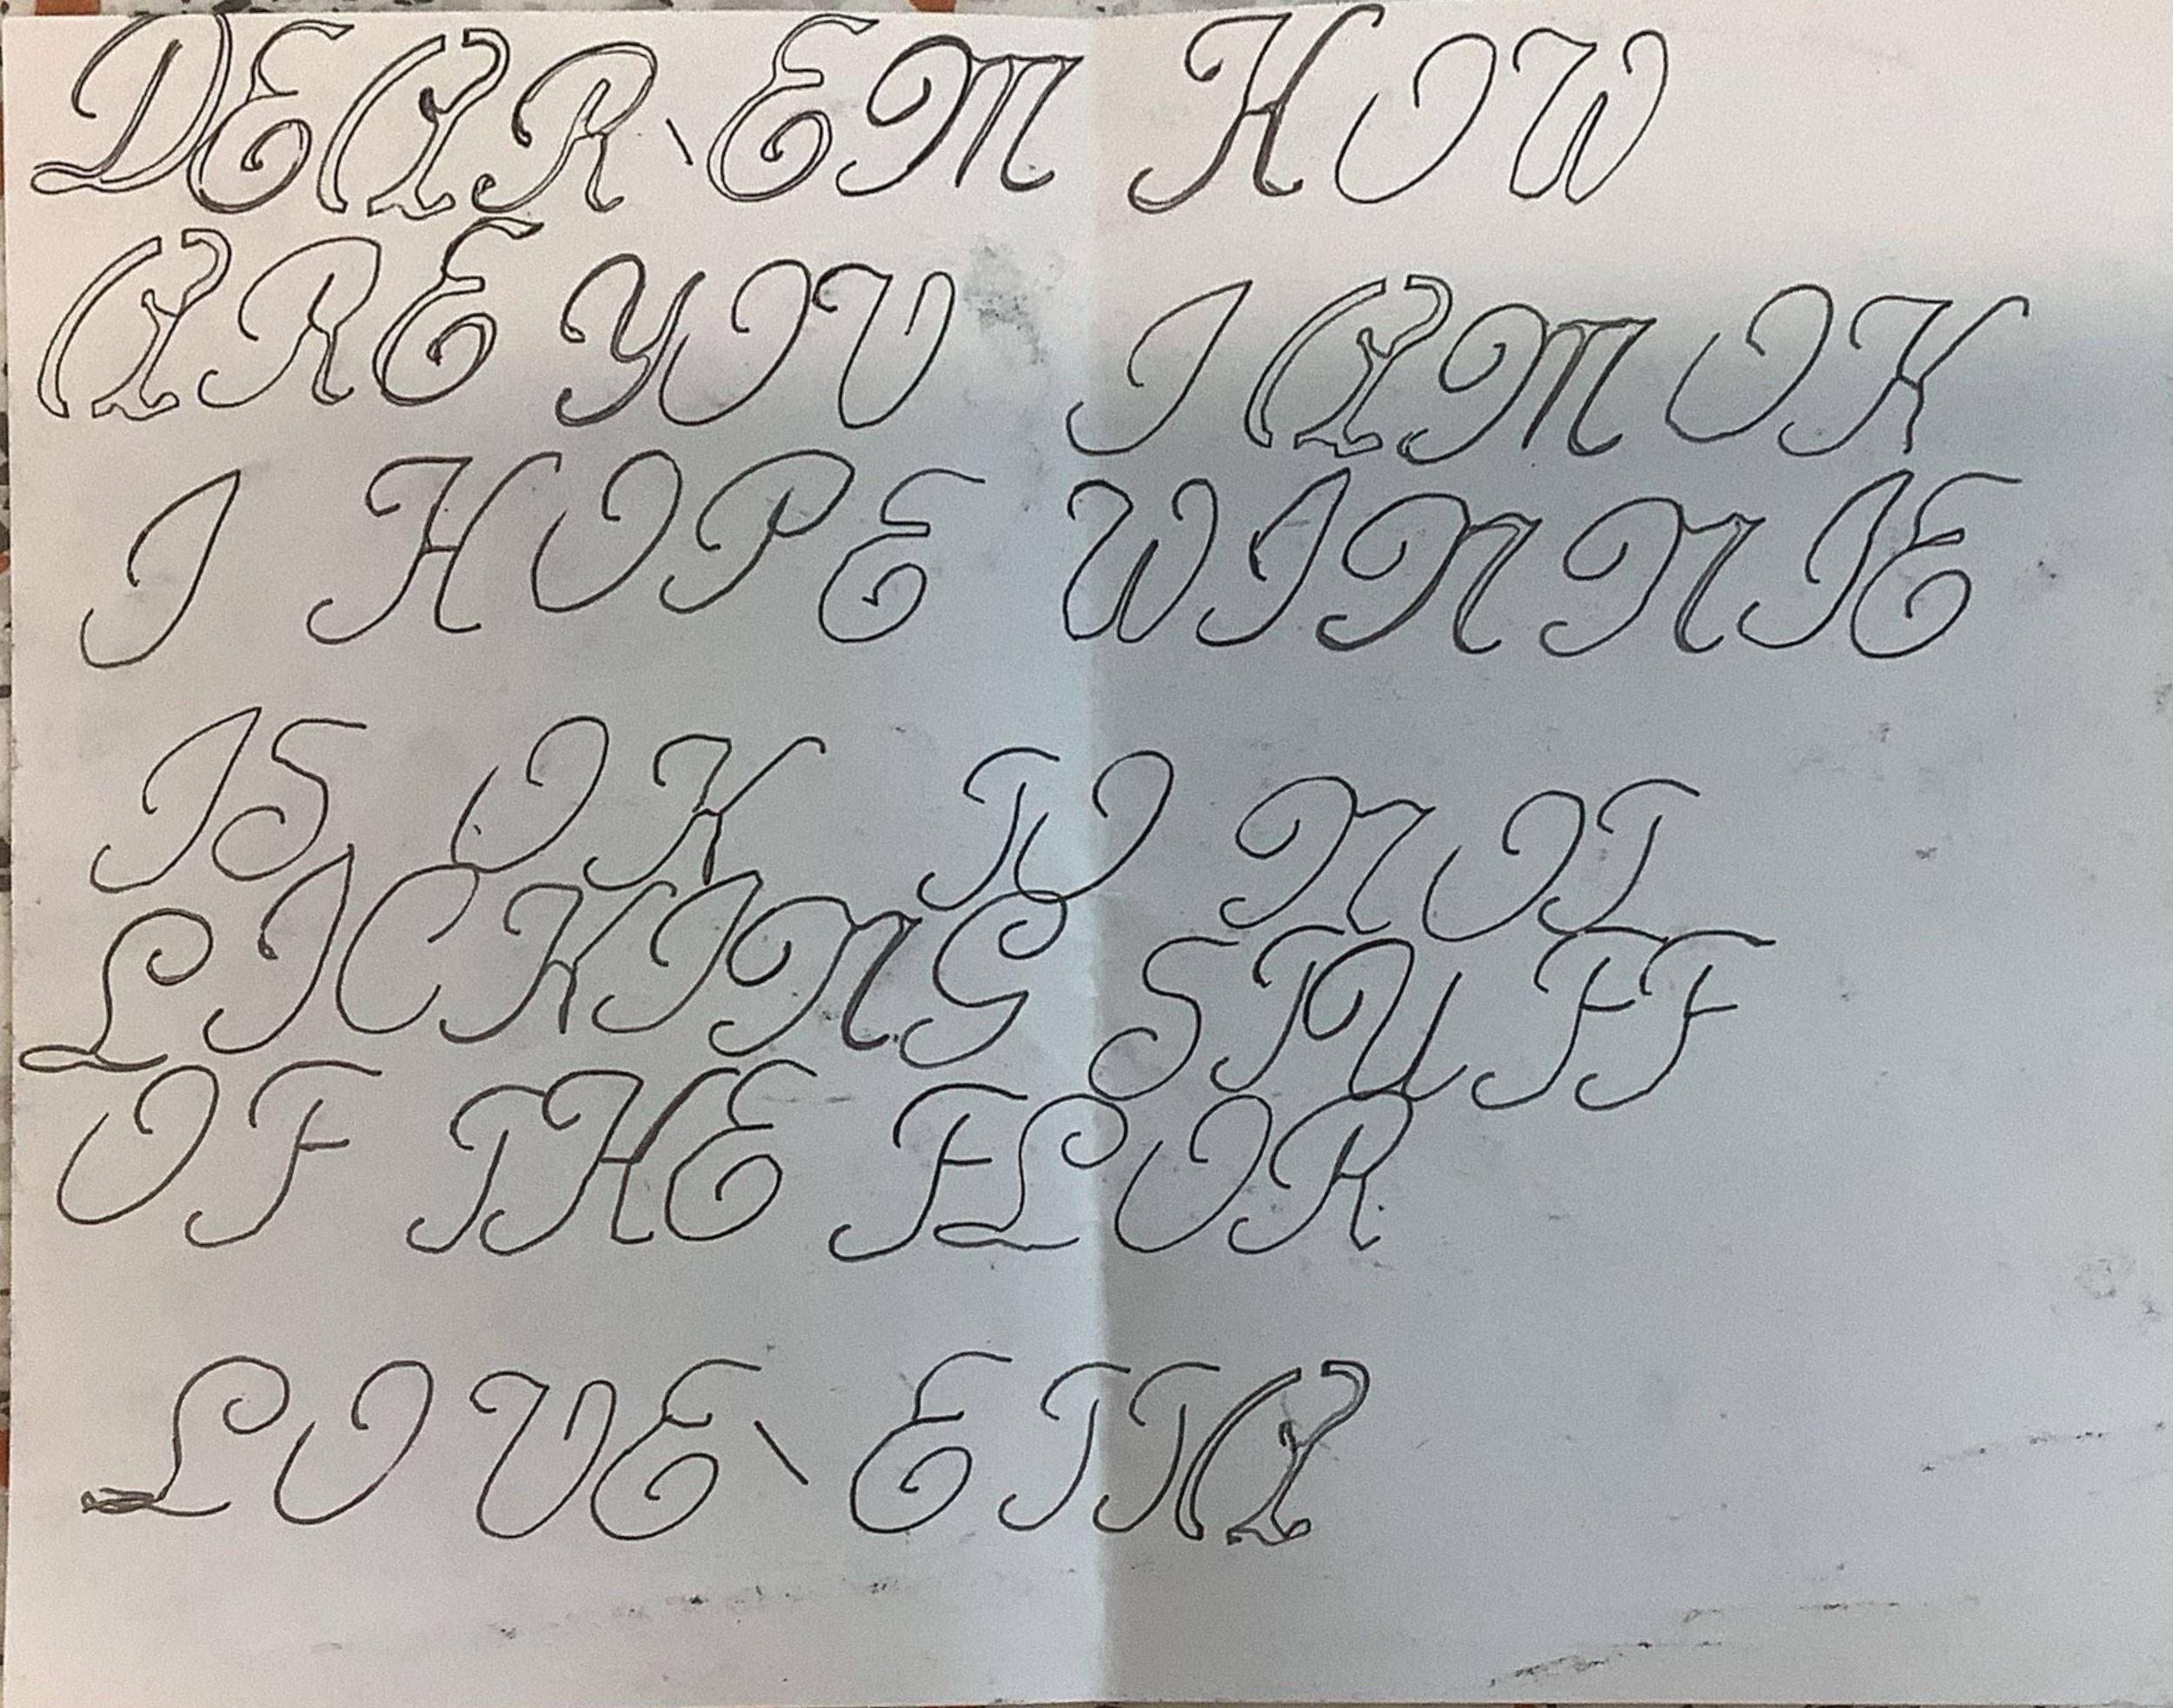 DEAR\EM HOW
ARE YOU I AM OK
I HOPE WINNIE
IS OK TO NOT
LICKING STUFF
OF THE FLOR
LOVE\ETTA